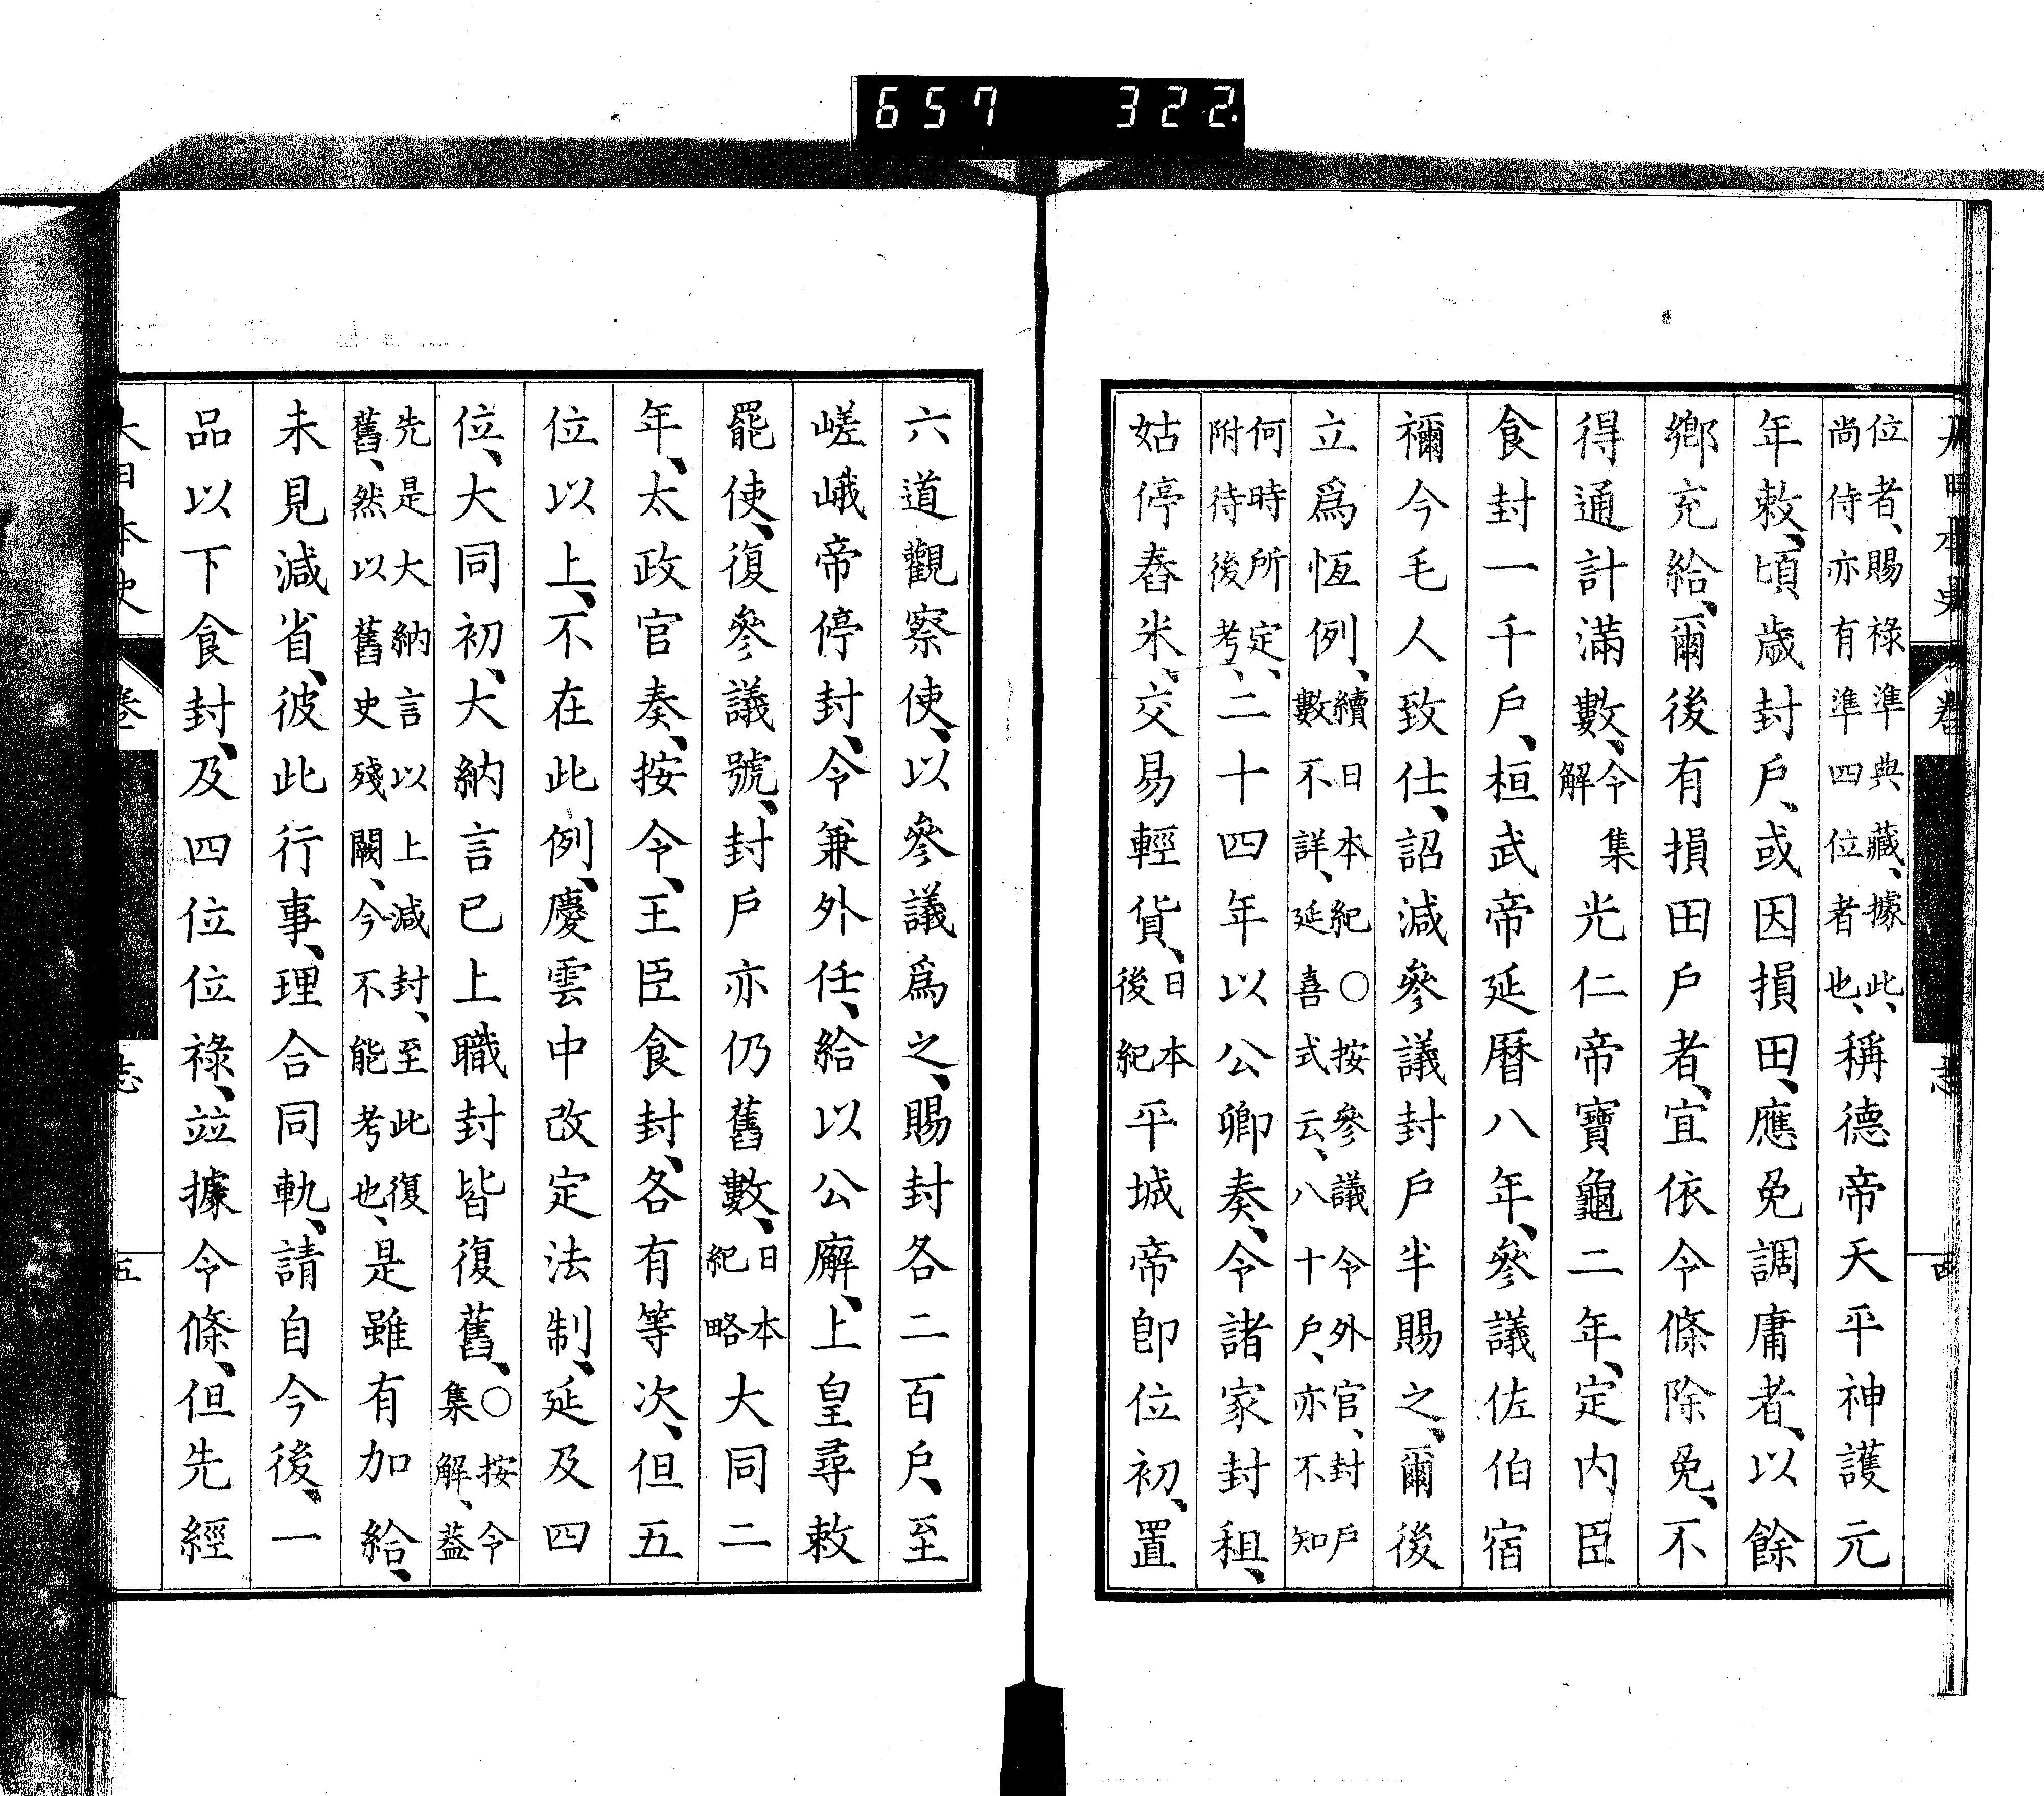 657 322
大日本史 卷 志 四
位者、賜祿準典藏、據此、尚侍亦有準四位者也、稱德帝天平神護元
年敕、頃歲封戶、或因損田、應免調庸者、以餘
鄉充給、爾後有損田戶者、宜依令條除免、不
得通計滿數、令集解光仁帝寶龜二年、定內臣
食封一千戶、桓武帝延曆八年、參議佐伯宿
禰今毛人致仕、詔減參議封戶半賜之、爾後
立爲恆例、續日本紀○按參議令外官、封戶數不詳、延喜式云、八十戶、亦不知
何時所定、附待後考、二十四年以公卿奏、令諸家封租、
姑停舂米、交易輕貨、日本後紀平城帝卽位初、置
六道觀察使、以參議爲之、賜封各二百戶、至
嵯峨帝停封、令兼外任、給以公廨、上皇尋敕
罷使、復參議號、封戶亦仍舊數、日本紀略大同二
年、太政官奏、按令、王臣食封、各有等次、但五
位以上、不在此例、慶雲中改定法制、延及四
位、大同初、大納言已上職封皆復舊、○按令集解、蓋
先是大納言以上減封、至此復舊、然以舊史殘闕、今不能考也、是雖有加給、
未見減省、彼此行事、理合同軌、請自今後、一
品以下食封、及四位位祿、竝據令條、但先經
大日本史 卷 志 五